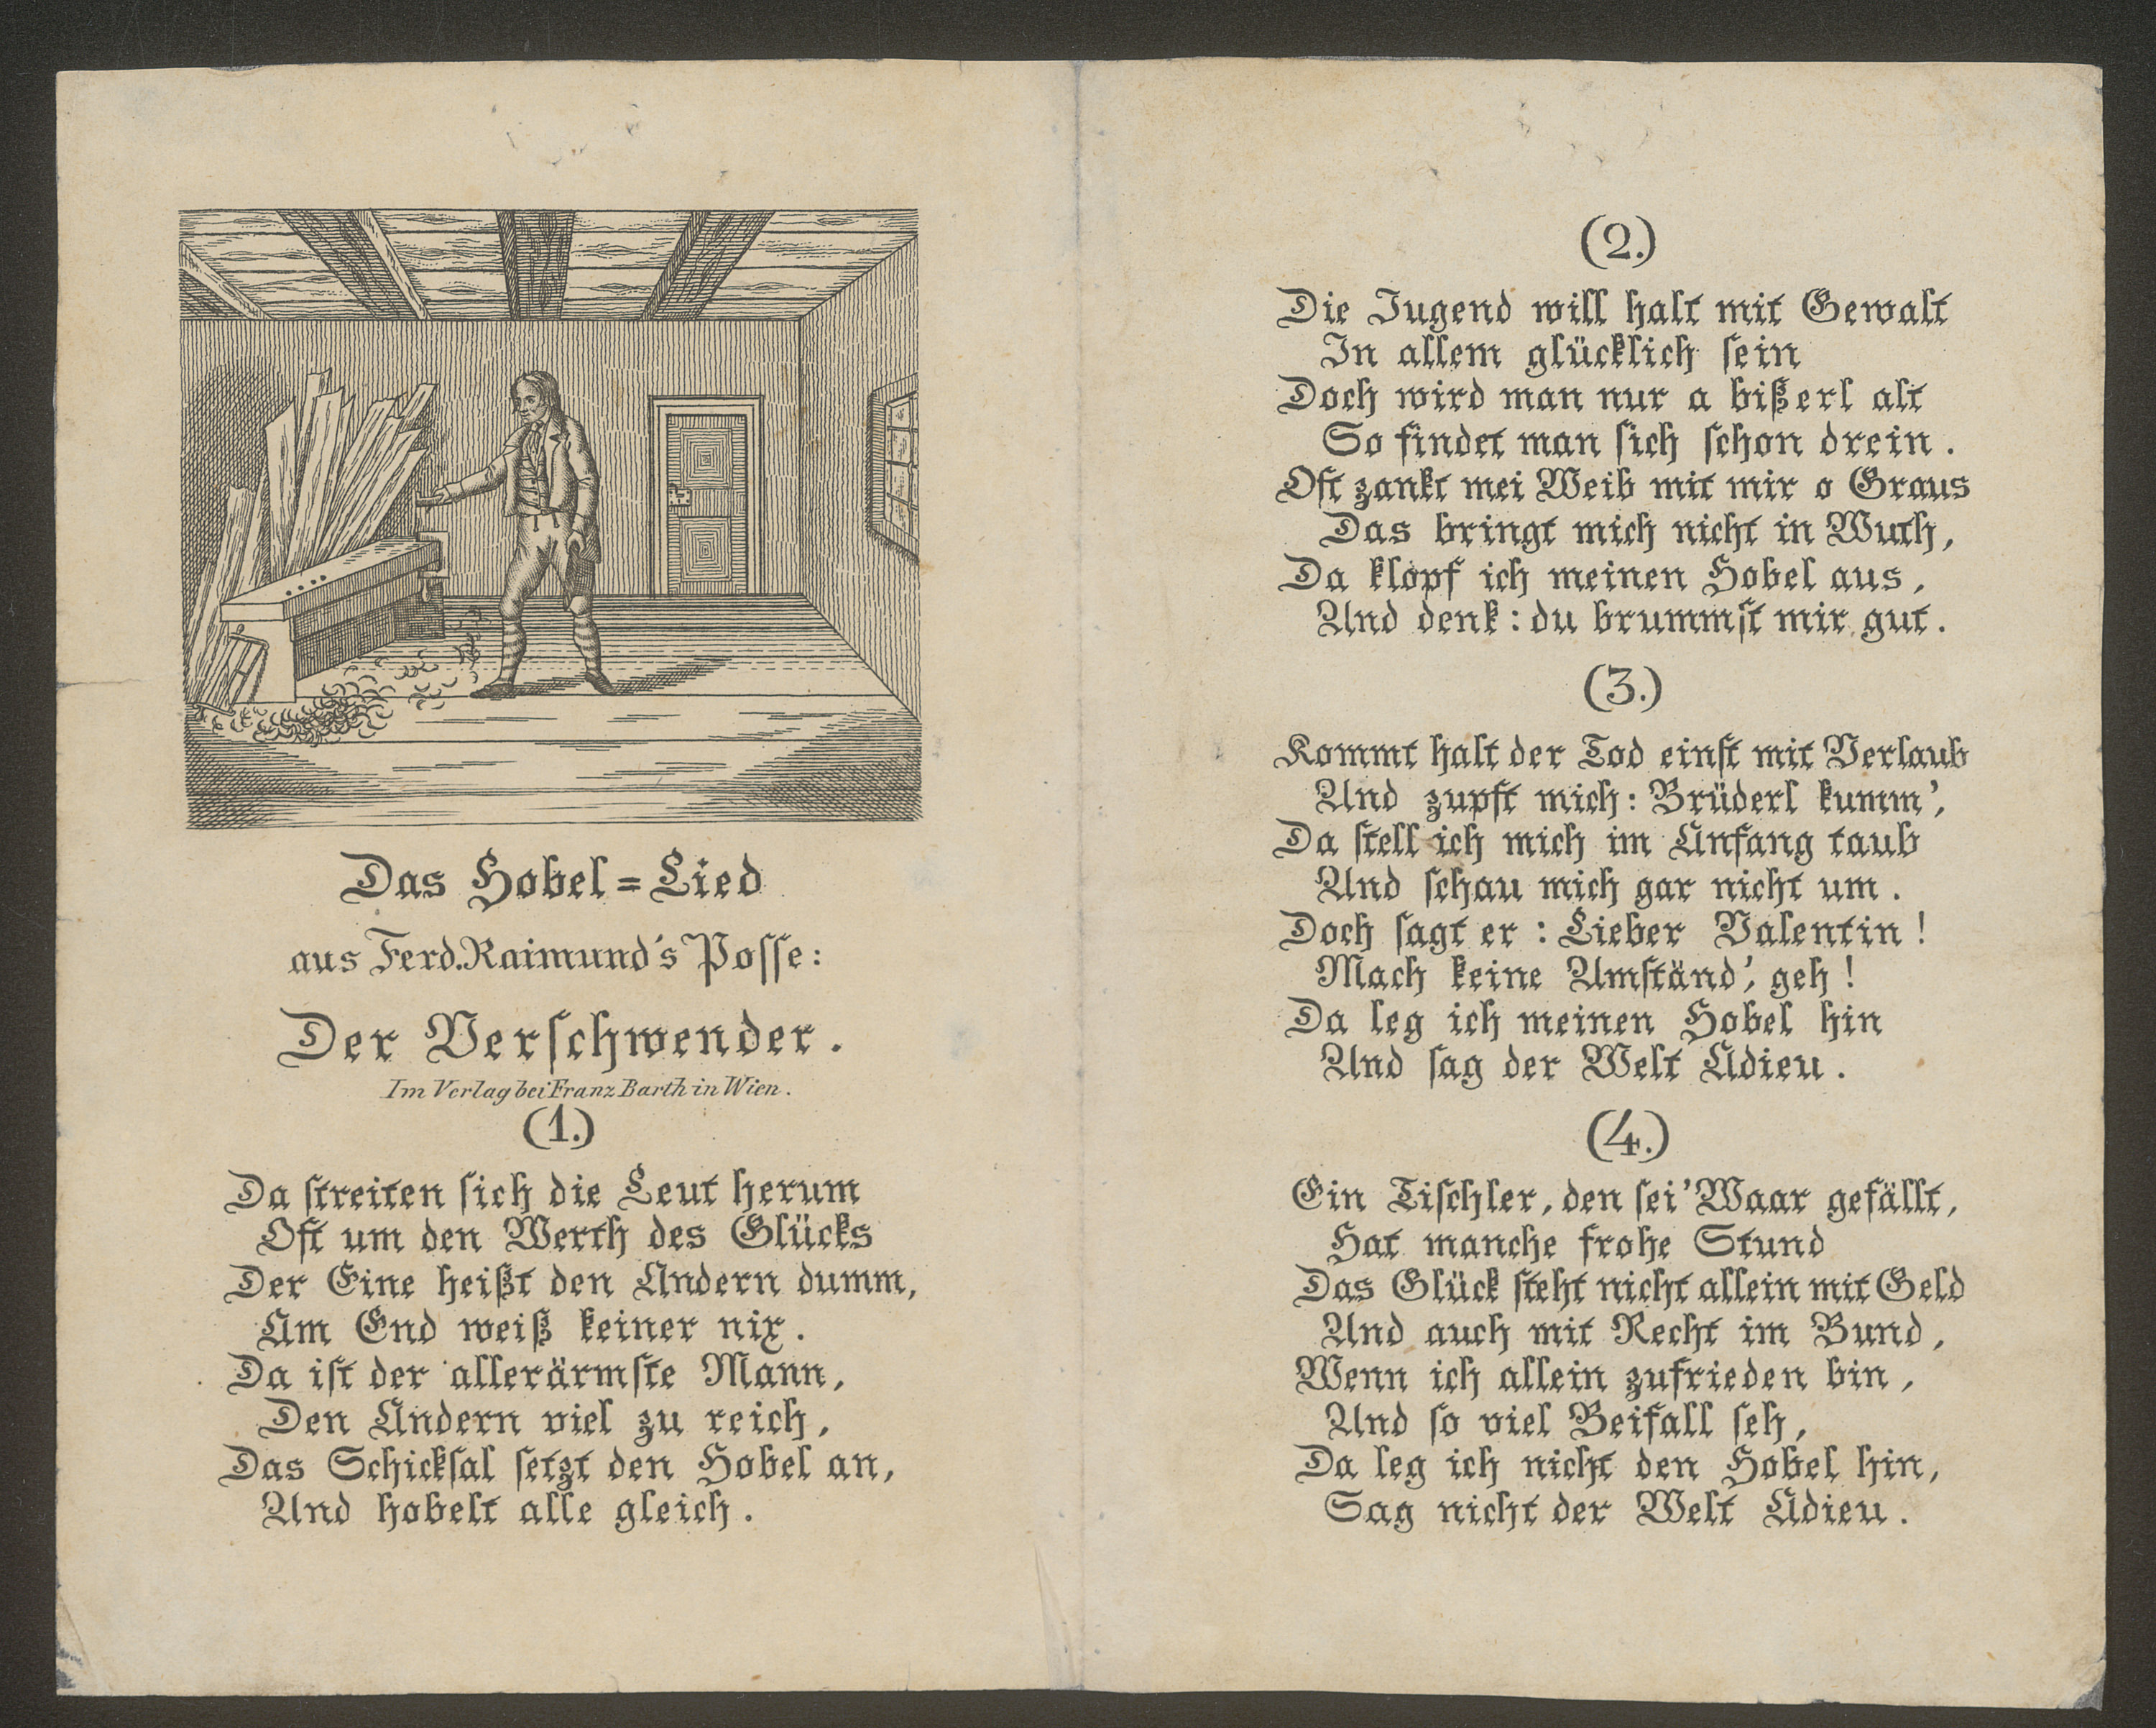 Das Hobel=Lied
aus Ferd. Raimund's Posse:
Der Verschwender.
Im Verlag bei Franz Barth in Wien.
(1.)
Da streiten sich die Leut herum
Oft um den Werth des Glücks
Der Eine heißt den Andern dumm,
Am End weiß keiner nix.
Da ist der allerärmste Mann,
Den Andern viel zu reich,
Das Schicksal setzt den Hobel an,
Und hobelt alle gleich.
(2.)
Die Jugend will halt mit Gewalt
In allem glücklich sein
Doch wird man nur a bißerl alt
So findet man sich schon drein.
Oft zankt mei Weib mit mir o Graus
Das bringt mich nicht in Wuth,
Da klopf ich meinen Hobel aus,
Und denk: du brummst mir gut.
(3.)
Kommt halt der Tod einst mit Verlaub
Und zupft mich: Brüderl kumm',
Da stell ich mich im Anfang taub
Und schau mich gar nicht um.
Doch sagt er: Lieber Valentin!
Mach keine Umständ', geh!
Da leg ich meinen Hobel hin
Und sag der Welt Adieu.
(4.)
Ein Tischler, den sei' Waar gefällt,
Hat manche frohe Stund
Das Glück steht nicht allein mit Geld
Und auch mit Recht im Bund,
Wenn ich allein zufrieden bin,
Und so viel Beifall seh,
Da leg ich nicht den Hobel hin,
Sag nicht der Welt Adieu.